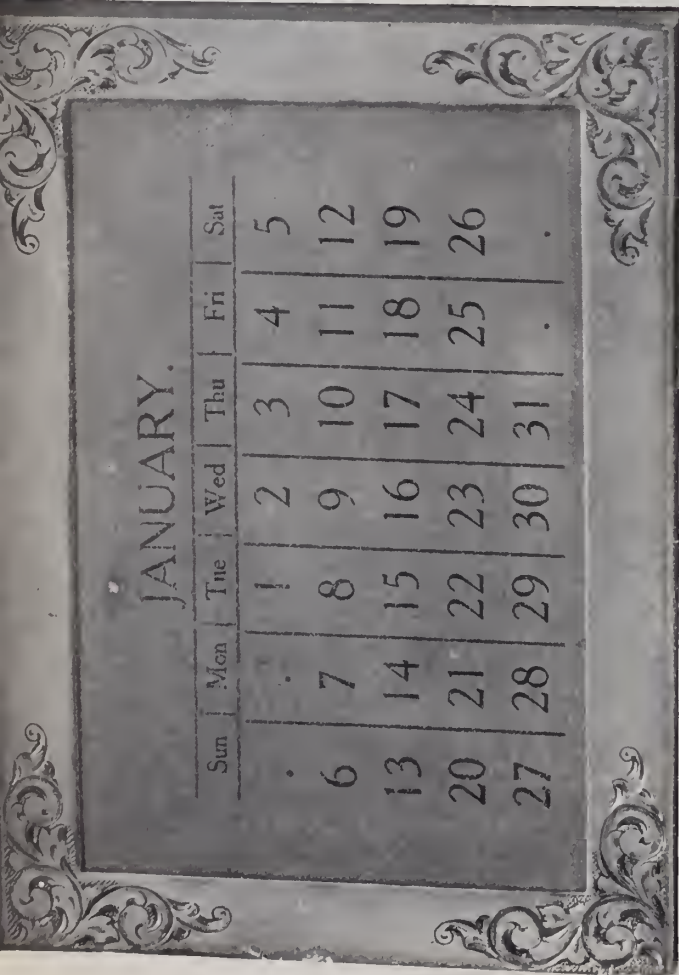 JANUARY.
Sun Mon Tue Wed Thu Fri Sat
. . 1 2 3 4 5
6 7 8 9 10 11 12
13 14 15 16 17 18 19
20 21 22 23 24 25 26
27 28 29 30 31 . .